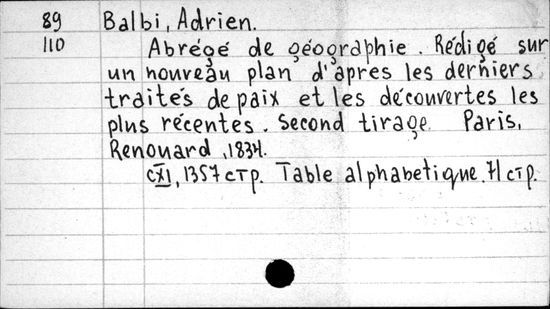 89 Balbi, Adrien.
110 Abrégé de géographie. Rédigé sur
un nouveau plan d'apres les derniers
traités de paix et les découvertes les
plus récentes. Second tirage. Paris,
Renouard, 1834.
CXI, 1357 стр. Table alphabetique. 71 стр.